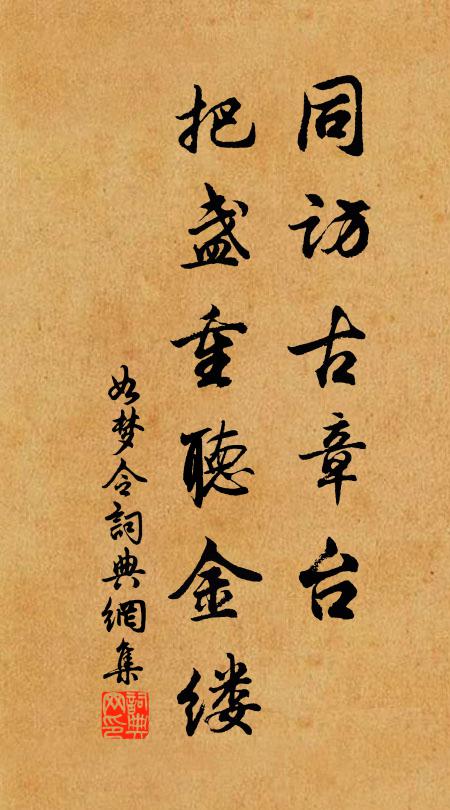 同访古章台
把盏重聽金缕
如梦令詞典網集
詞典网印